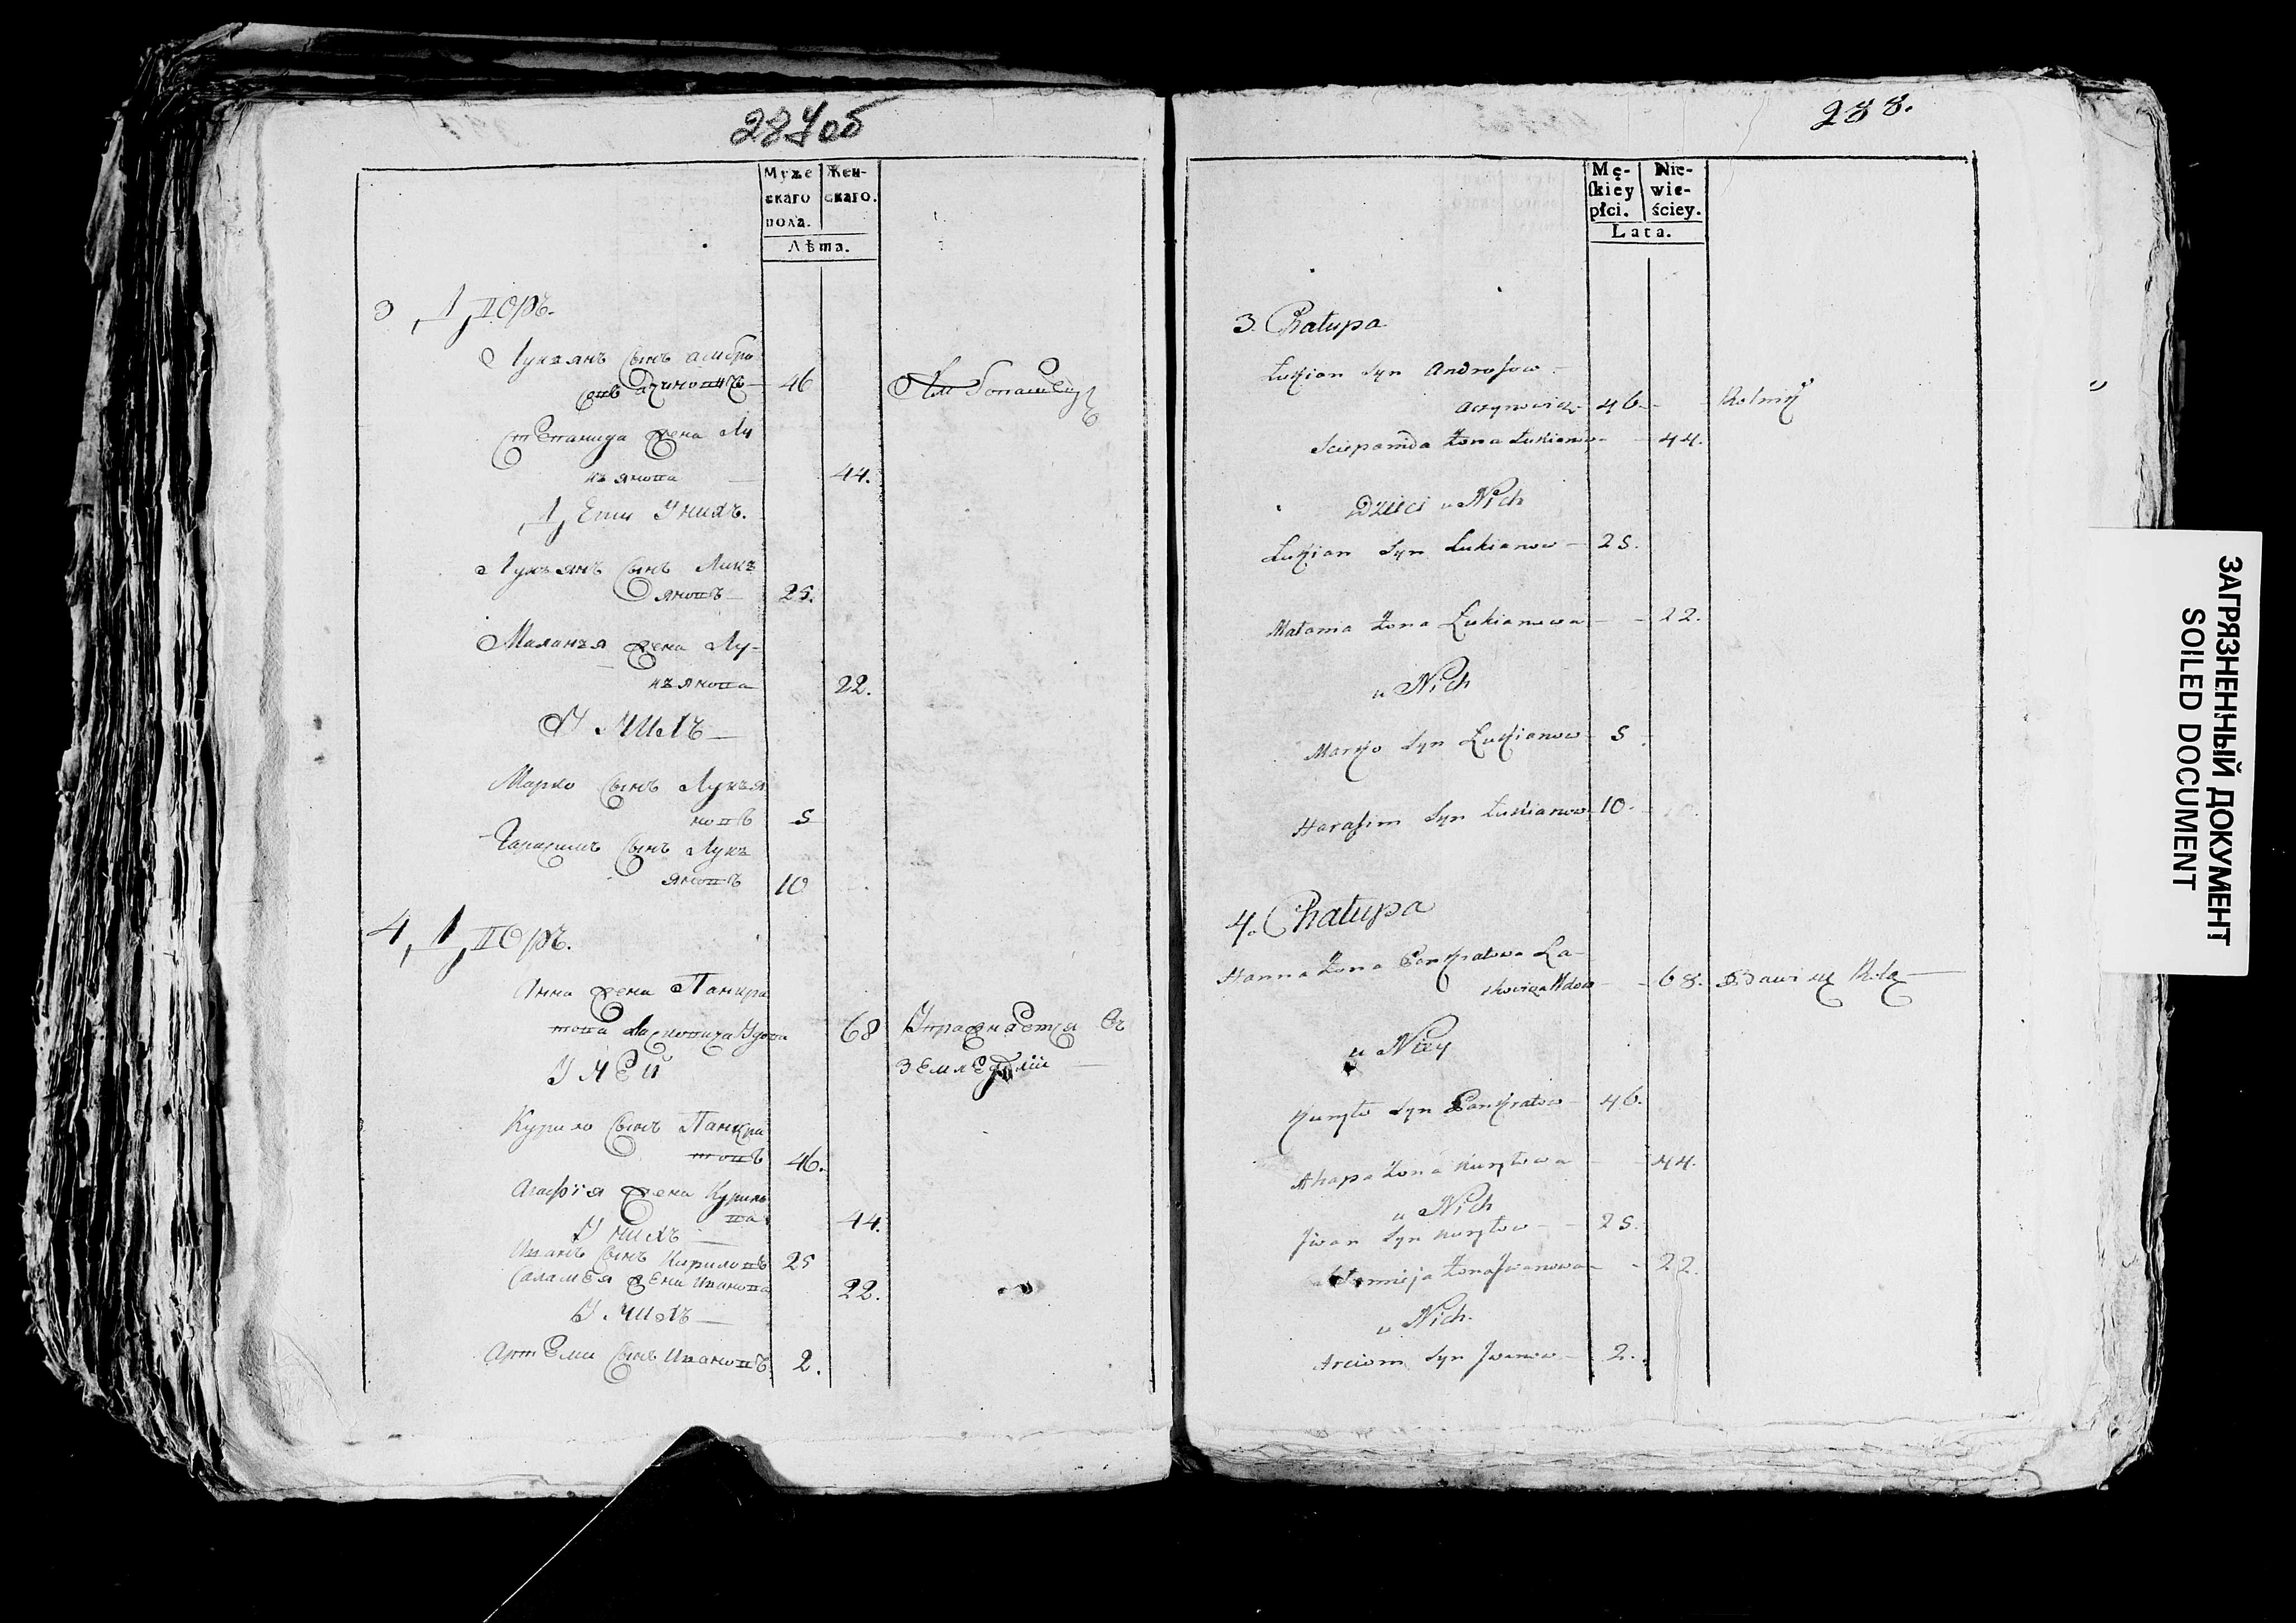 287об
Муже
скаго
пола.
Жен-
скаго.
Лѣта.
3 Дворъ.
Лукъянъ сынъ амбро
46
Степанида жена Лу
къянова 44.
Дети Унихъ.
Лукъянъ сынъ Лукъ
яновъ 25.
Маланъя жена Лу-
къянова 22.
У нихъ
Марко сынъ Лукъя
новъ 5
Гарасимъ сынъ Лукъ
яновъ 10
4 Дворъ.
Анна жена Панкра
това Ласковича Удова 68 Упражнаетца въ
У ней земледелии
Курило сынъ Панкра
товъ 46.
Агафїя жена Курило
ва 44.
У нихъ
Иванъ сынъ Кириловъ 25
Саламея жена Иванова 22.
У нихъ
Артеми сынъ Ивановъ 2.
288.
Mę-
skiey
płci.
Nie-
wie-
ściey.
Lata.
3. Chałupa
Lukian Syn Androsow
46. Rolnik
Sciepanida Żona Łukianow 44.
Dzieci u Nich
Lukian Syn Lukianow 25.
Małania Żona Łukianowa 22.
u Nich
Marko Syn Łukianow 5
Harasim Syn Łukianow 10.
4. Chałupa
Hanna Żona Pankratowa La-
skowicza Wdow 68. Bawi się Rolą
u Niey
Kuryło Syn Pankratow 46.
Ahapa Żona Kuryłowa 44.
u Nich
Jwan Syn Kuryłow 25.
Żona Jwanowa 22.
u Nich.
Arciom Syn Jwanow 2.
ЗАГРЯЗНЕННЫЙ ДОКУМЕНТ
SOILED DOCUMENT